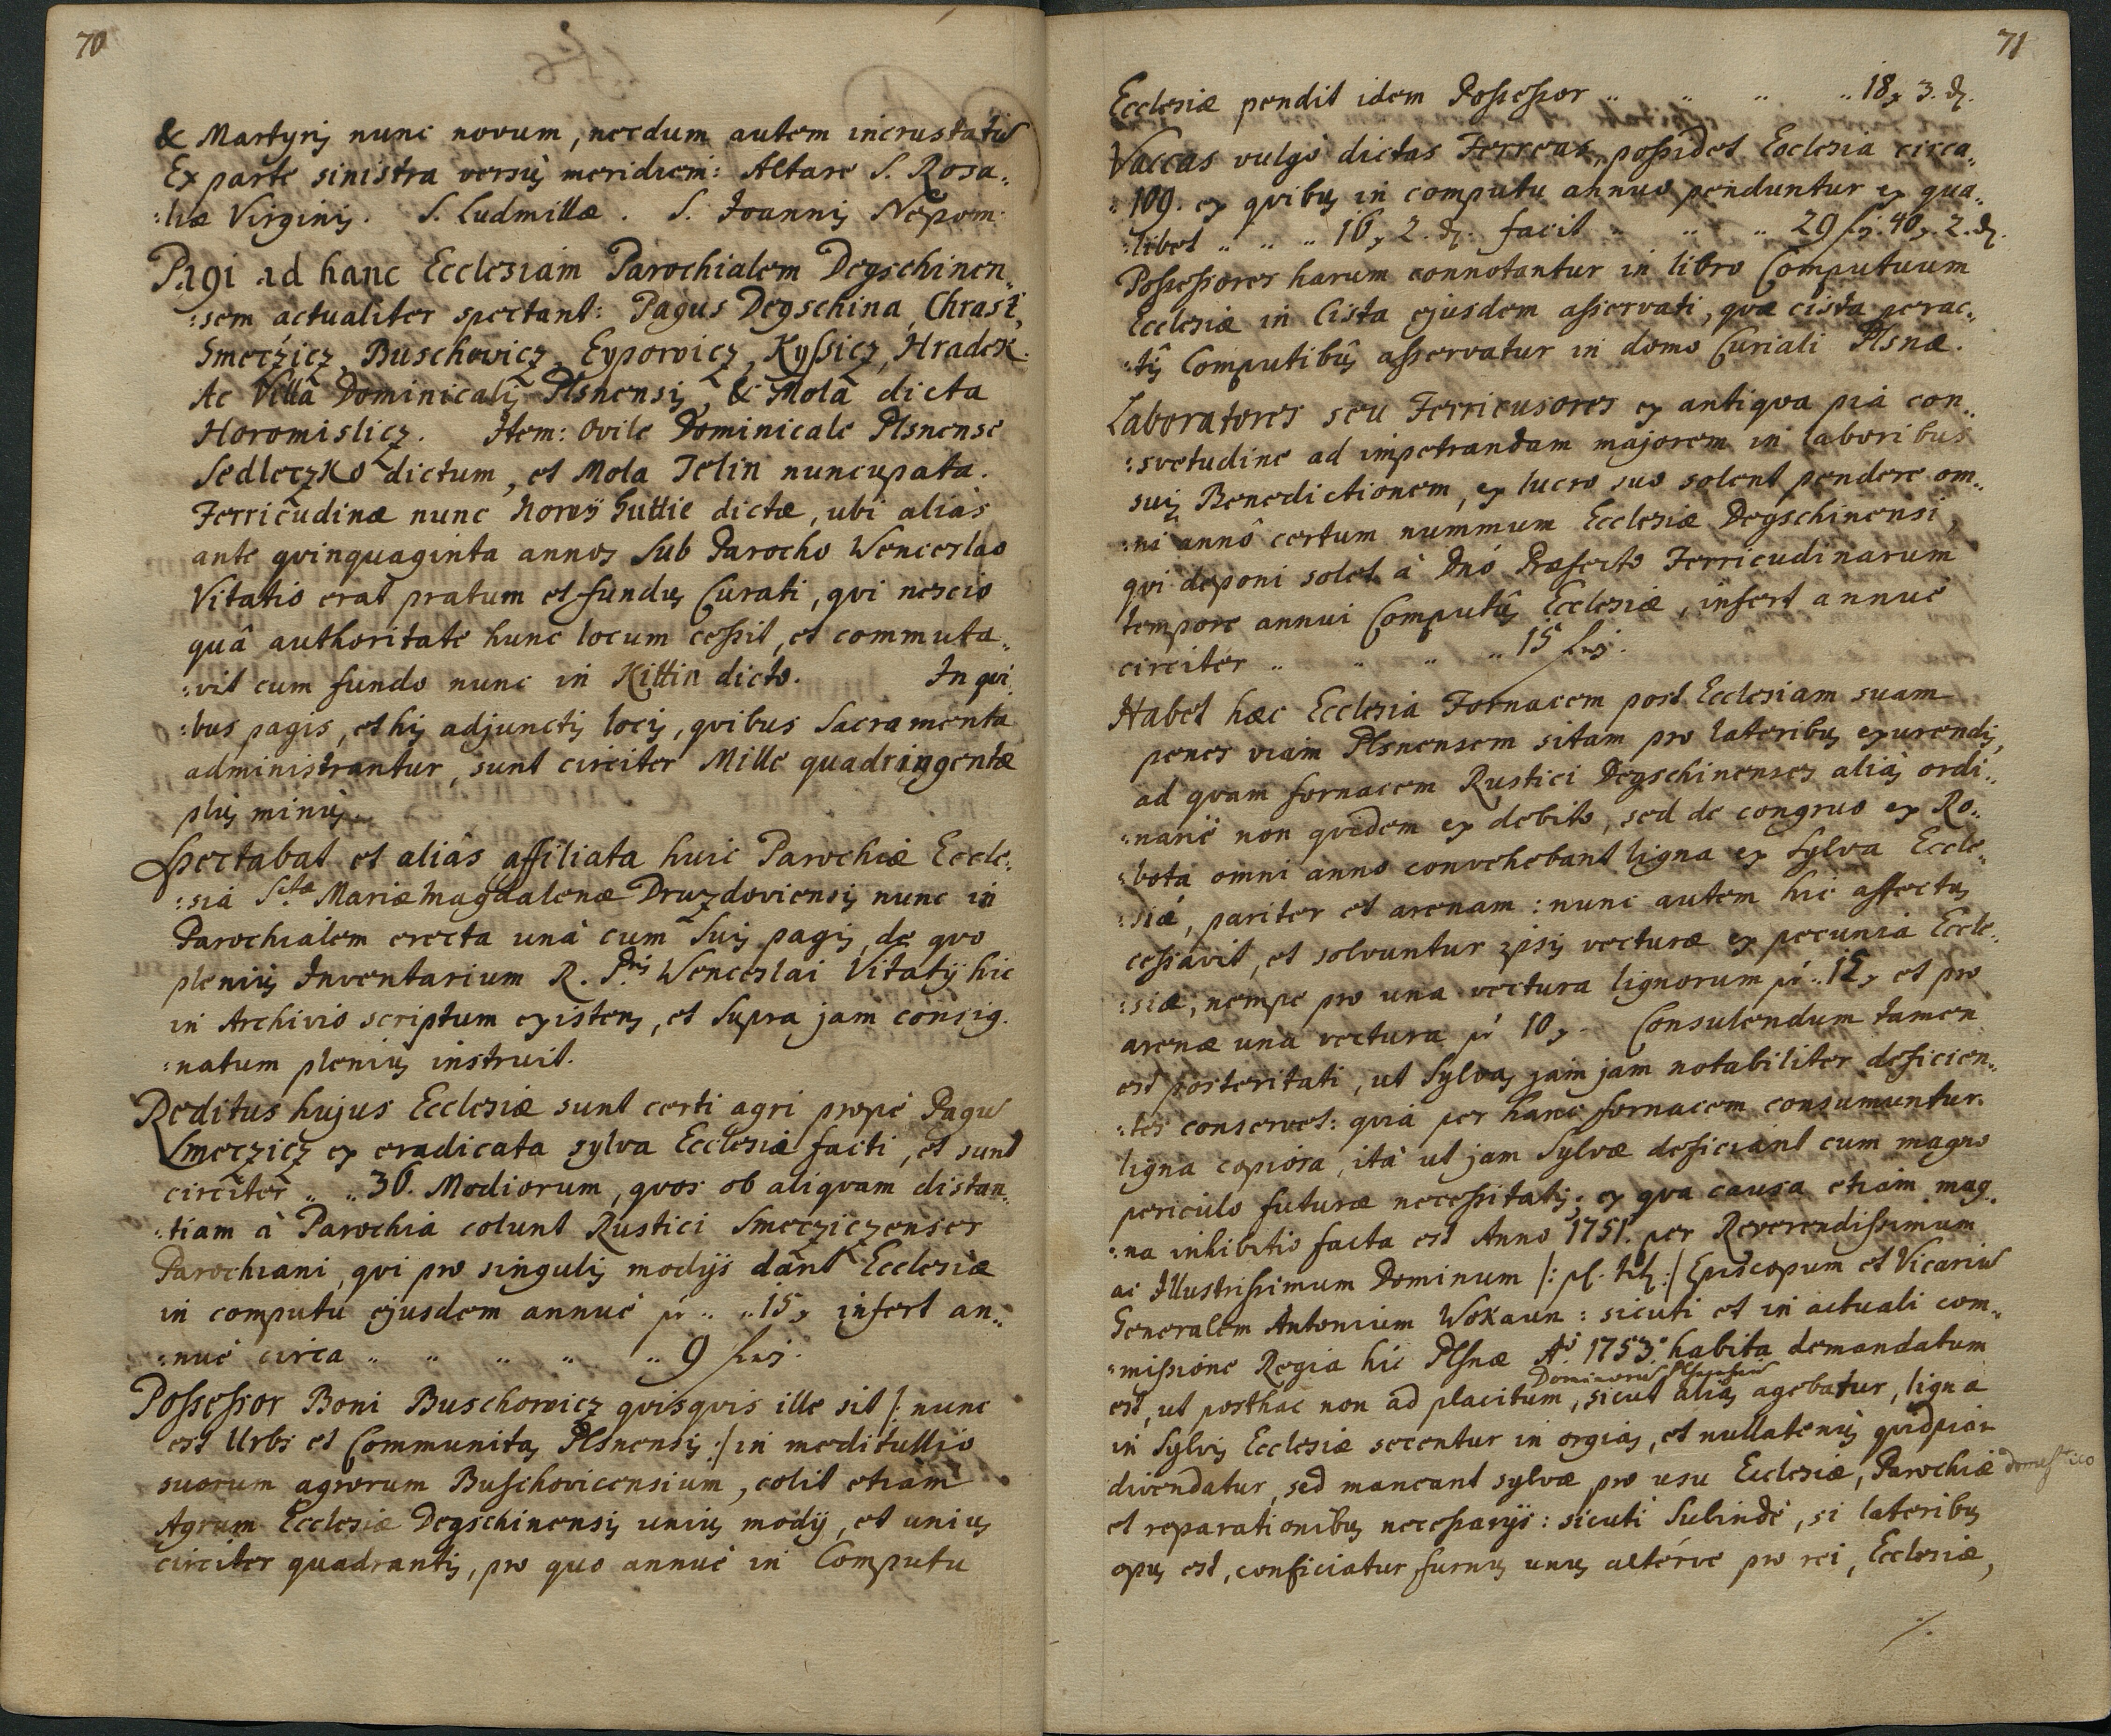 70
& Martyris nunc novum, necdum autem incrustatum
Ex parte sinistra versus meridiem: Altare S. Rosa„
:liæ Virginis. S. Ludmillæ. S. Joannis Nepom:
Pagi ad hanc Ecclesiam Parochialem Degschinen„
:sem actualiter spectant: Pagus Degschina, Chrast,
Smeczicz, Buschovicz, Eypowicz, Kyssicz, Hradek.
Ac Villa Dominicalis Plsnensis, & Mola dicta
Horomislicz. Item: Ovile Dominicale Plsnense
Sedleczko dictum, et Mola Jelin nuncupata.
Ferricudinæ nunc Nowy Huttie dictæ, ubi aliàs
ante qvinquaginta annos sub Parocho Wenceslao
Vitatio erat pratum et fundus Curati, qvi nescio
quâ authoritate hunc locum cessit, et commuta„
:vit cum fundo nunc in Kittin dicto. In qvi„
:bus pagis, et his adjunctis locis, qvibus Sacramenta
administrantur, sunt circiter Mille quadringentæ
plus minus.
Spectabat et aliâs affiliata huic Parochiæ Eccle:
:sia S.tæ Mariæ Magdalenæ Druzdoviensis nunc in
Parochialem erecta unà cum suis pagis, de qvo
pleniùs Inventarium R. P.ris Wenceslai Vitatij hic
in Archivio scriptum existens, et supra jam consig.
:natum plenius instruit.
Reditus hujus Ecclesiæ sunt certi agri propè Pagum
Smeczicz ex eradicata sylva Ecclesiæ facti, et sunt
circiter „ „ 36. Modiorum, qvos ob aliqvam distan„
:tiam à Parochia colunt Rustici Smecziczenses
Parochiani, qvi pro singulis modijs dant Ecclesiæ
in computu ejusdem annuè pr „ „ 15 x infert an„
:nuè circa „ „ „ „ „ 9 fl.
Possessor Boni Buschowicz qvisqvis ille sit /: nunc
est Urbs et Communitas Plsnensis :/ in meditullio
suorum agrorum Buschovicensium, colit etiam
Agrum Ecclesiæ Degschinensis unius modij, et unius
circiter quadrantis, pro quo annuè in Computu
71
Ecclesiæ pendit idem Possessor „ „ „ „ 18 x 3. d.
Vaccas vulgò dictas Ferreas, possidet Ecclesia circa„
:109. ex qvibus in computu annuo penduntur ex qua„
:libet „ „ „ 16 x 2. d. facit „ „ „ 29 fl. 40 x 2. d.
Possessores harum connotantur in libro Computuum
Ecclesiæ in Cista ejusdem asservati, qvæ cista perac„
:tis Computibus asservatur in domo Curiali Plsnæ.
Laboratores seu Ferricusores ex antiqva pia con„
:svetudine ad impetrandam majorem in laboribus
suis Benedictionem, ex lucro suo solent pendere om„
:ni annô certum nummum Ecclesiæ Degschinensi,
qvi deponi solet à Dnô Præfecto Ferricudinarum
tempore annui Computûs Ecclesiæ, infert annuè
circiter „ „ „ „ 15 fl.
Habet hæc Ecclesia Fornacem post Ecclesiam suam
penes viam Plsnensem sitam pro lateribus exurendis,
ad qvam fornacem Rustici Degschinenses aliàs ordi„
:nariè non qvidem ex debito, sed de congruo ex Ro„
:bota omni anno convehebant ligna ex Sylva Eccle„
:siæ, pariter et arenam: nunc autem hic affectus
cessavit, et solvuntur ipsis vecturæ ex pecunia Eccle„
:siæ, nempe pro una vectura lignorum pr „ 15 x et pro
arenæ una vectura pr 10 x. Consulendum tamen
est posteritati, ut Sylvas jam jam notabiliter deficien„
:tes conservet: quia per hanc fornacem consumuntur
ligna copiosa, ità ut jam Sylvæ deficiant cum magno
periculo futuræ necessitatis; ex qva causa etiam mag„
:na inhibitio facta est Anno 1751. per Reverendissimum
ac Illustrissimum Dominum /: pl. tit: :/ Episcopum et Vicarium
Generalem Antonium Wokaun: sicuti et in actuali com„
:missione Regia hic Plsnæ Aô 1753. habita demandatum
Dominorum Plsnensium
est, ut posthac non ad placitum, sicut aliàs agebatur, ligna
in Sylvis Ecclesiæ secentur in orgias, et nullatenus qvidpiam
divendatur, sed maneant sylvæ pro usu Ecclesiæ, Parochiæ domestico
et reparationibus necessarijs: sicuti Subindè, si lateribus
opus est, conficiatur furnus unus altérve pro rei, Ecclesiæ,
./.